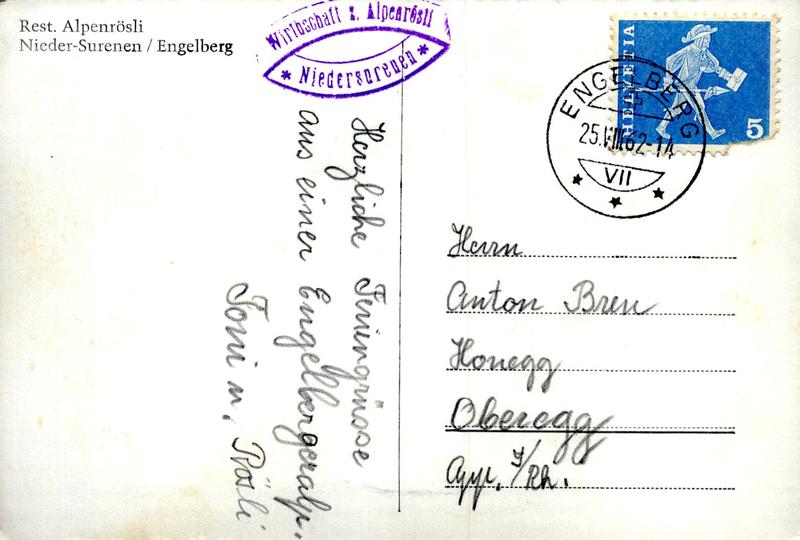 Rest. Alpenrösli
Nieder-Surenen / Engelberg
Wirtschaft z. Alpenrösli
* Niedersurenen *
HELVETIA
5
ENGELBERG
25.VIII.62-14
VII
Herzliche Feriengrüsse
aus einer Engelbergeralp.
Toni u. Rösli
Herrn
Anton Breu
Honegg
Oberegg
App. I/Rh.